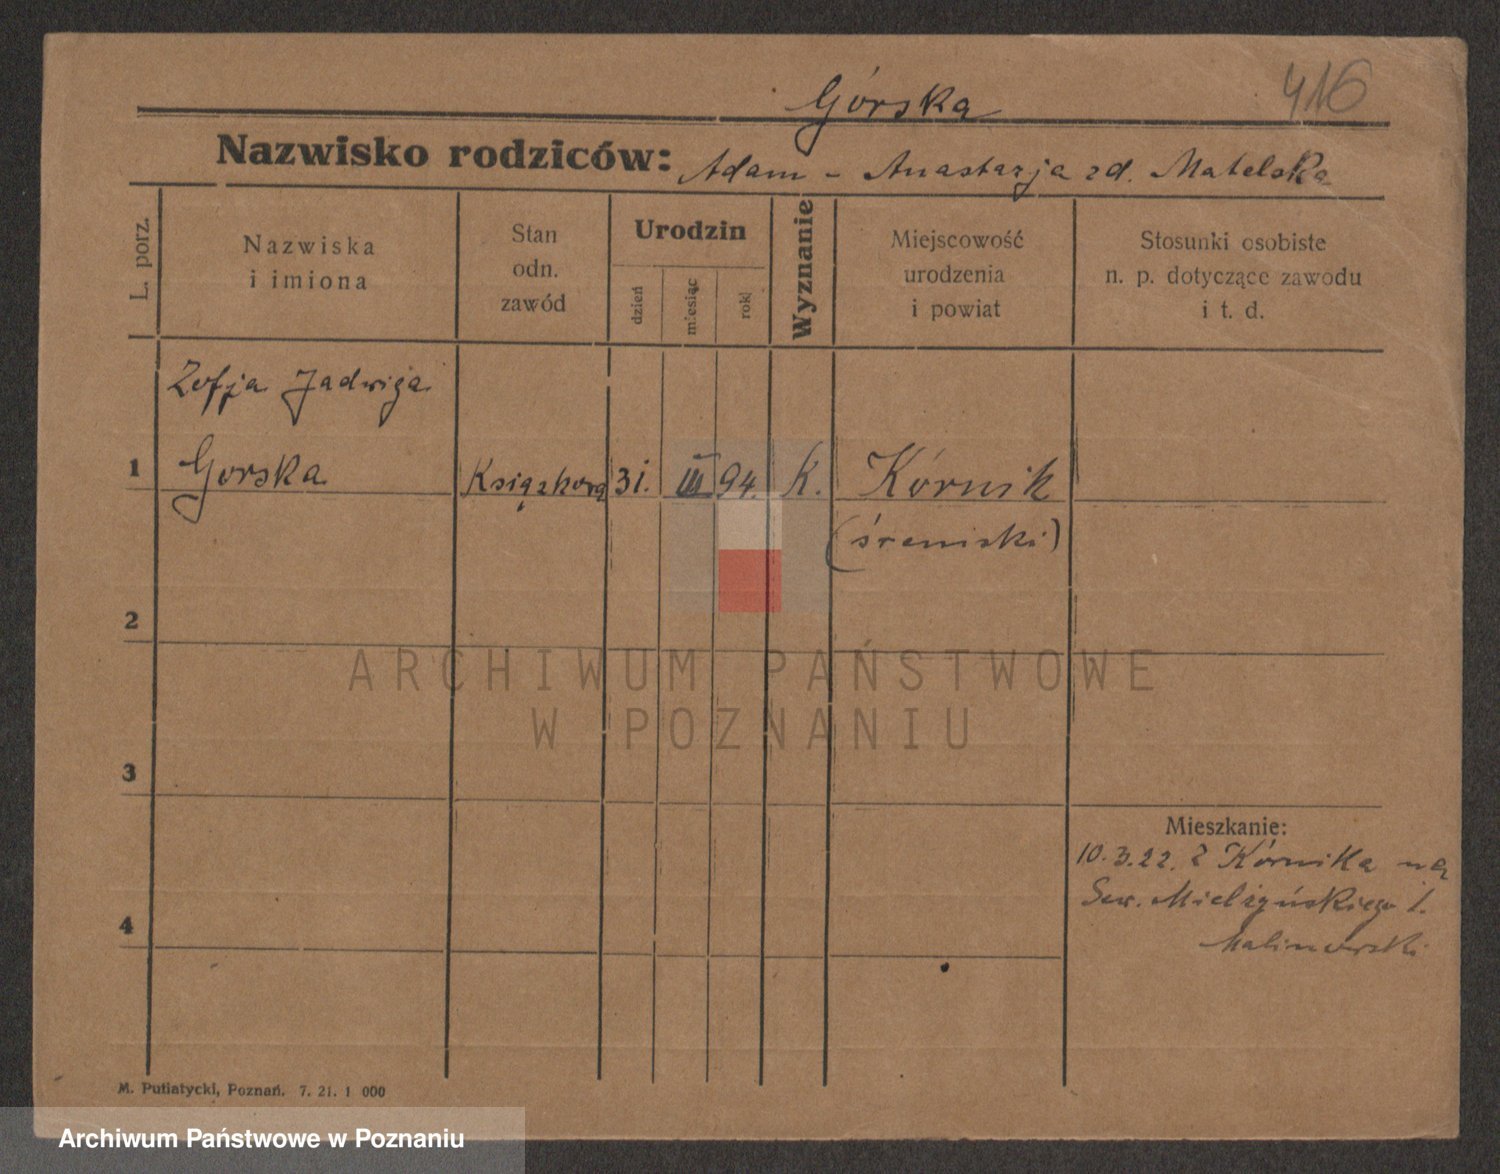 416
Górska
Nazwisko rodziców: Adam - Anastazja zd. Matelska
L. porz.
Nazwiska
i imiona
Stan
odn.
zawód
Urodzin
dzień
miesiąc
rok
Wyznanie
Miejscowość
urodzenia
i powiat
Stosunki osobiste
n. p. dotyczące zawodu
i t. d.
Zofja Jadwiga
1 Gorska Książkowa 31. III 94. K. Kórnik
(śremski)
2
ARCHIWUM PAŃSTWOWE
W POZNANIU
3
Mieszkanie:
10.3.22. z Kórnika na
Sew. Mielżyńskiego 1.
4
Malinowski
M. Putiatycki, Poznań. 7. 21. 1 000
Archiwum Państwowe w Poznaniu